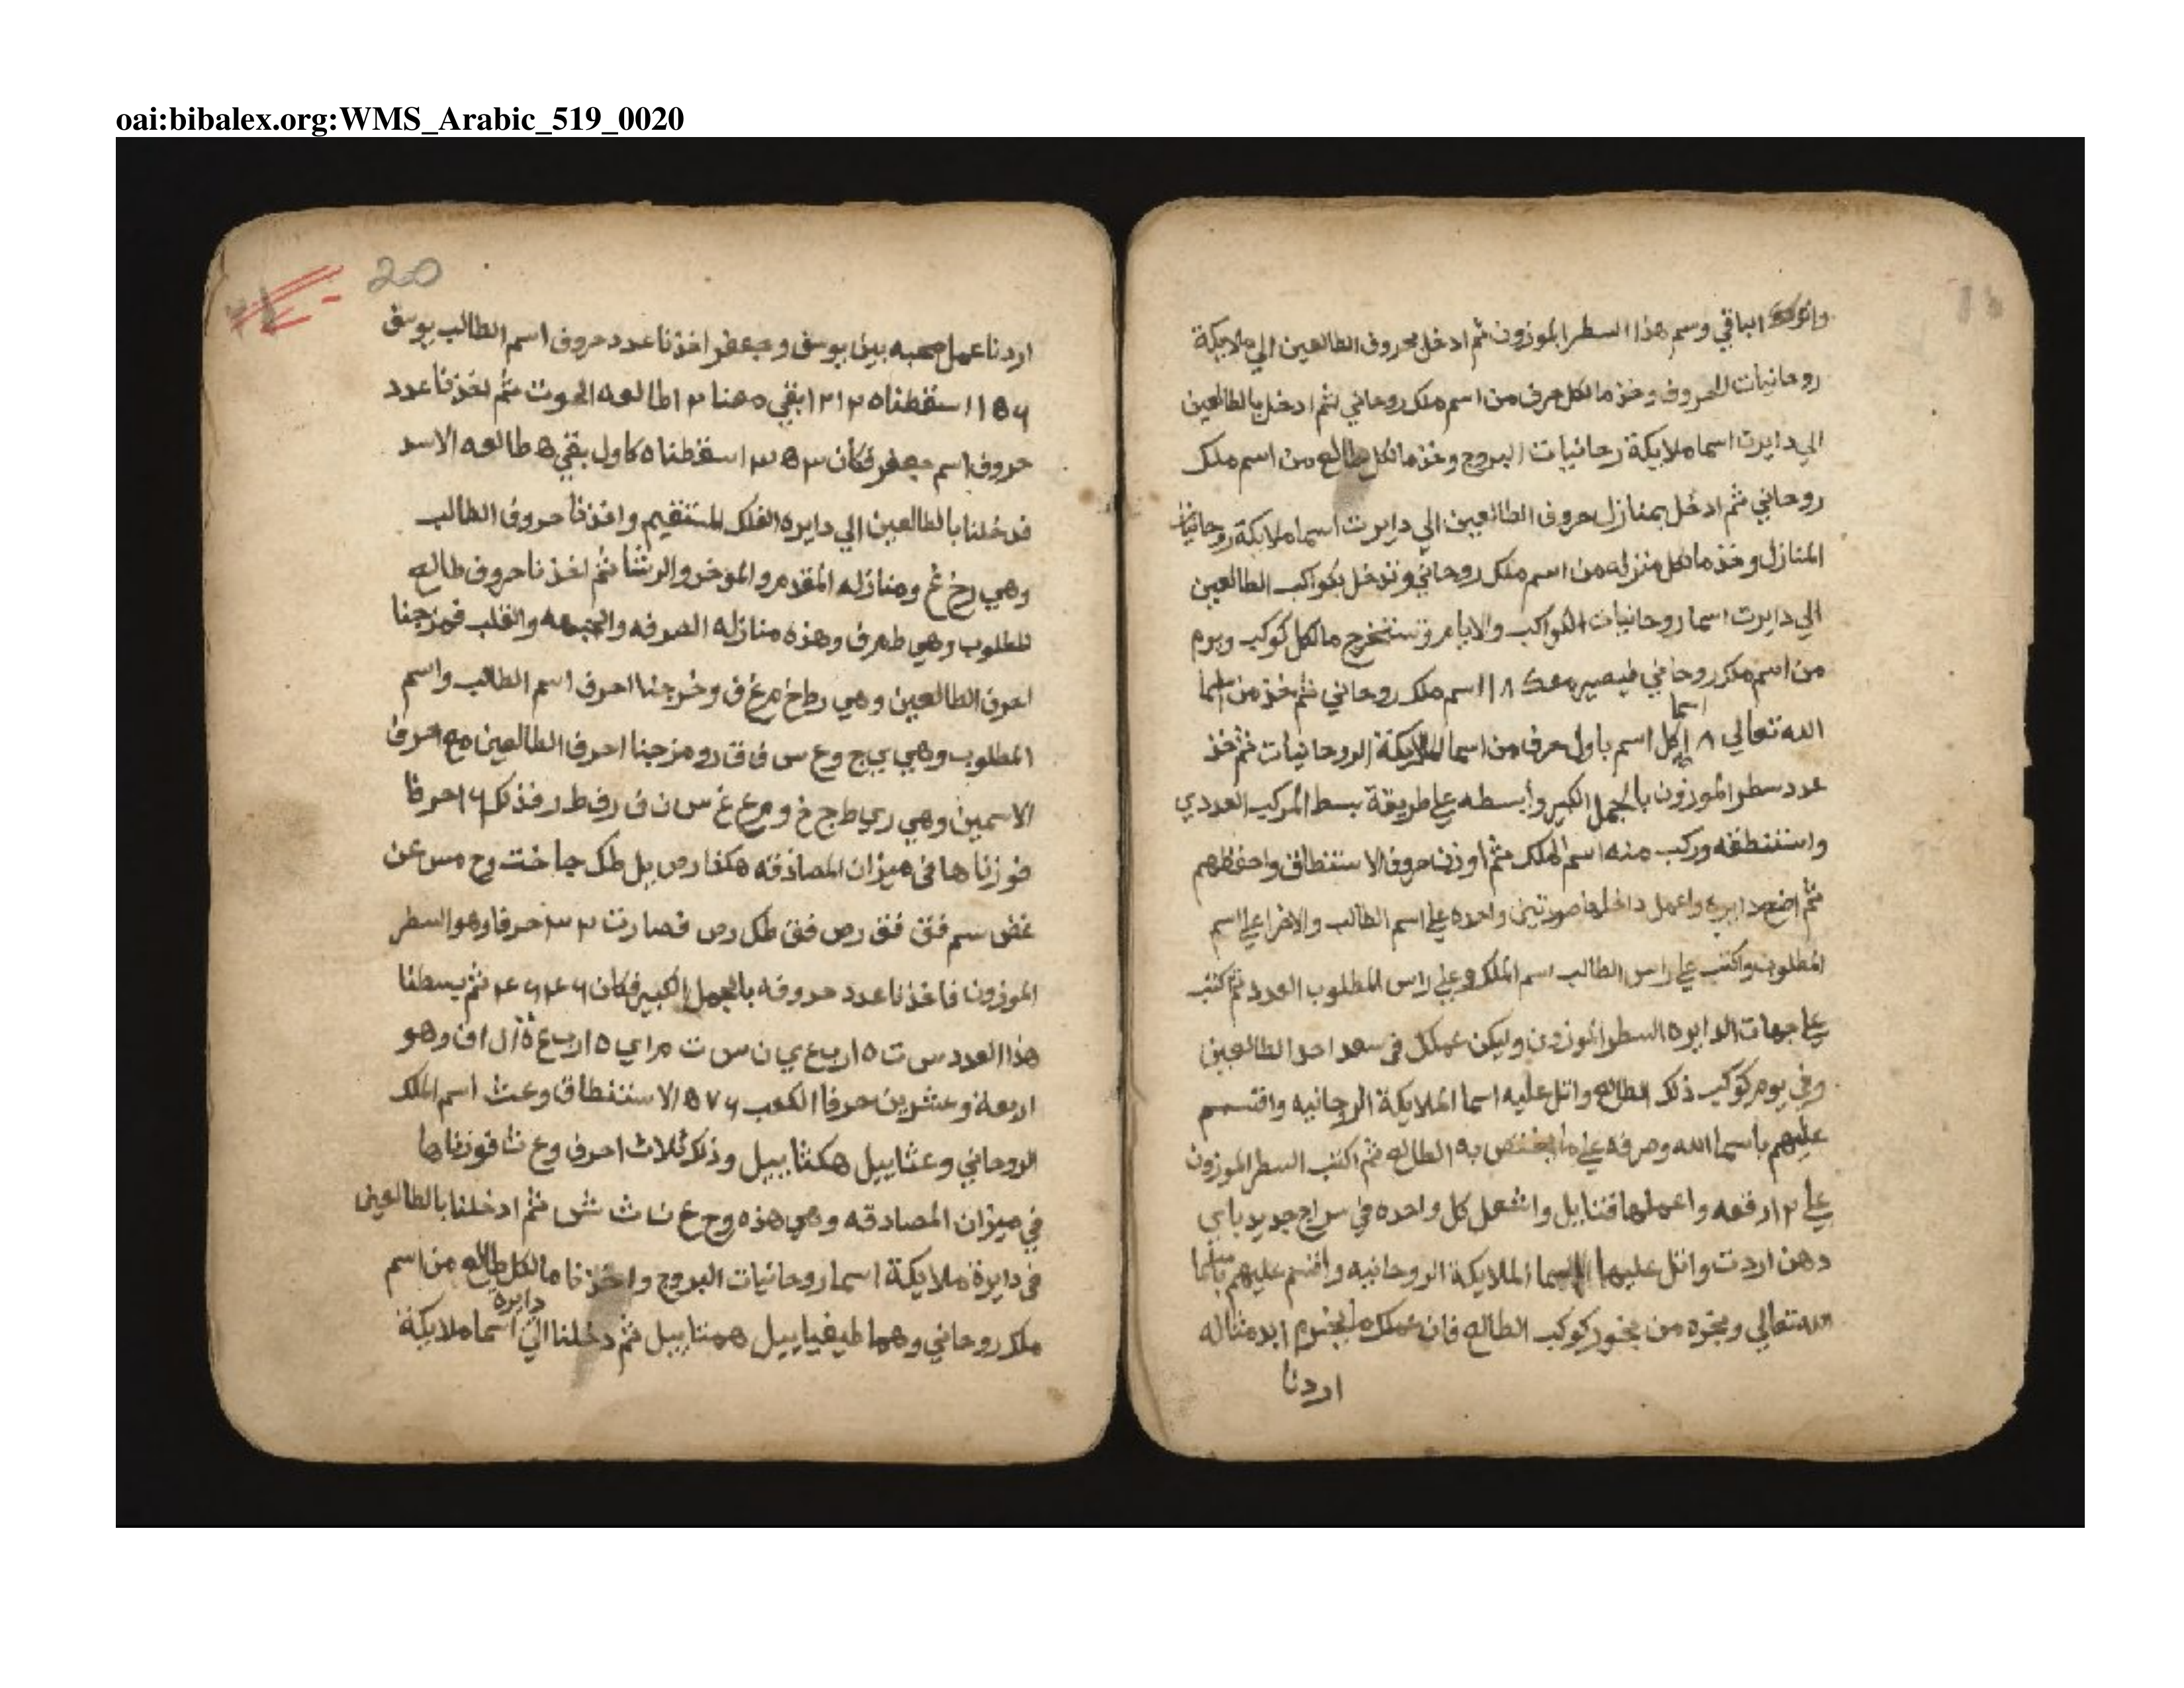 oai:bibalex.org:WMS_Arabic_519_0020
الباقي وسم هذا السطر الموزون ثم ادخل بحروف الطالعين الي ملايكة
روحانيات الحروف وخذ ما لكل حرف من اسم ملك روحاني ثم ادخل بالطالعين
الي دايرت اسما ملايكة رحانيات البروج وخذ ما لكل طالع من اسم ملك
روحاني ثم ادخل بمنازل حروف الطالعين الي دايرت اسما ملايكة روحانيات
المنازل وخذ ما لكل منزله من اسم ملك روحاني وتدخل بكواكب الطالعين
الي دايرت اسما روحانيات الكواكب والايام وتستخرج ما لكل كوكب ويوم
من اسم ملك روحاني فيصير معك ١٨ اسم ملك روحاني ثم خذ من اسما
الله تعالي ١٨ اسما كل اسم باول حرف من اسما الملايكة الروحانيات ثم خذ
عدد سطر الموزون بالجمل الكبير وابسطه علي طريقة بسط المركب العددي
واستنطقه وركب منه اسم الملك ثم اوزن حروف الاستنطاق واحفظهم
ثم اضع دايره واعمل داخلها صورتين واحده علي اسم الطالب والاخرا علي اسم
المطلوب واكتب علي راس الطالب اسم الملك وعلي راس المطلوب العدد ثم كتب
علي جهات الدايره السطر الموزون وليكن عملك في سعد احد الطالعين
وفي يوم كوكب ذلك الطالع واتل عليه اسما الملايكة الروحانيه واقسم
عليهم باسما الله وصرفه علي ما يختص به الطالع ثم اكتب السطر الموزون
علي ١٢ رقعه واعملها فتايل واشعل كل واحده في سراج جديد باي
دهن اردت واتل عليها اسما الملايكة الروحانيه واقسم عليهم باسما
الله تعالي وبخره من بخور كوكب الطالع فان عملك ابد مثاله
اردنا
20
اردنا عمل محبه بين يوسف وجعفر اخذنا عدد حروف اسم الطالب يوسف
١٥٦ اسقطناه ١٢ ١٢ بقي معنا ١٢ طالعه الحوت ثم اخذنا عدد
حروف اسم جعفر فكان ٣٥٣ اسقطناه كاول بقي ٥ طالعه الاسد
فدخلنا بالطالعين الي دايره الفلك المستقيم واخذنا حروف الطالب
وهي رخ غ ومنازله المقدم والموخر والرشا ثم اخذنا حروف طالع
المطلوب وهي طم ف وهذه منازله الصرفه والجبهه والقلب فمزجنا
احرف الطالعين وهي رط خ م غ ف وخرجنا احرف اسم الطالب واسم
المطلوب وهي ي ج وع س ف ف ر ومزجنا احرف الطالعين مع احرف
الاسمين وهي ري ط ج خ و م ع غ س ن ف رف ط ر فذلك ١٦ حرفا
فوزناها في ميزان المصادقه هكذا رص يل طك جا خت وح مس عن
غض سم فق فق رص فق طك رص فصارت ٣٢ حرفا وهو السطر
الموزون فاخذنا عدد حروفه بالجمل الكبير فكان ٤٦٤٦ ثم بسطنا
هذا العدد س ت ه ارب ع ي ن س ت م اي ه ارب ع ة ال اف وهو
اربعة وعشرين حرفا الكعب ٥٧٦ الاستنطاق وعث اسم الملك
الروحاني وعثاييل هكثاييل وذلك ثلاث احرف وع ث فوزناها
في ميزان المصادقه وهي هذه وح ع ن ث ش ثم ادخلنا بالطالعين
في دايرة ملايكة اسما روحانيات البروج واخذنا ما لكل طالع من اسم
ملك روحاني وهما طيفياييل همتاييل ثم دخلنا الي دايرة اسما ملايكة